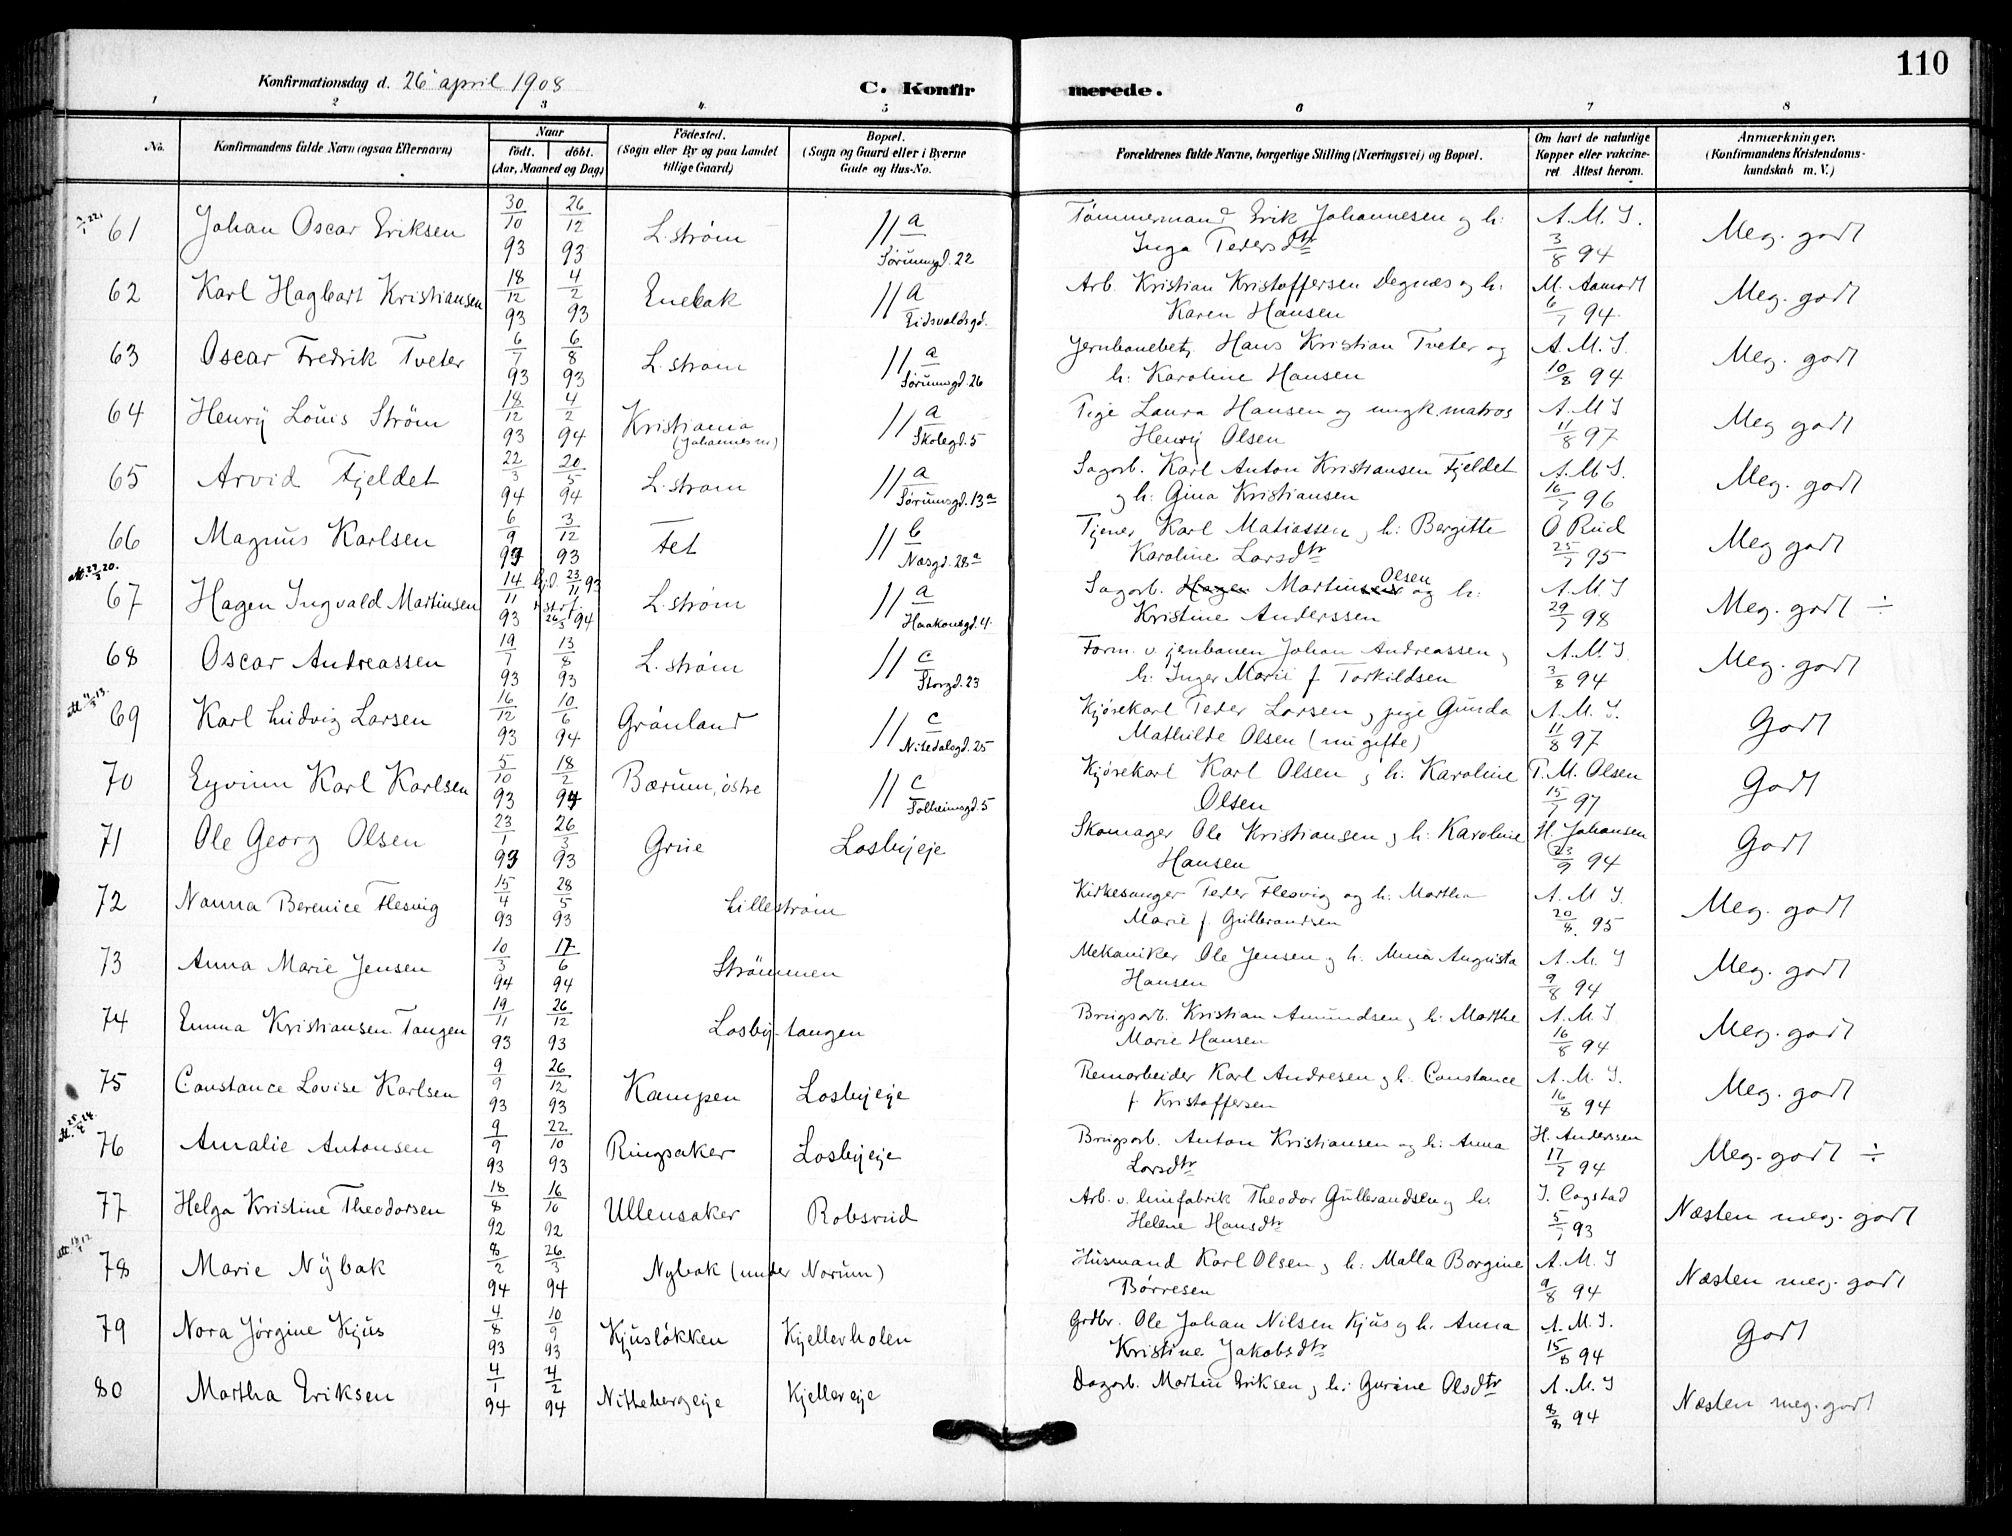 110
Konfirmationsdag d. 26 april 1908
C. Konfirmerede.
1 2 3 4 5 6 7 8
No. | Konfirmandens fulde Navn (ogsaa Efternavn) | Naar født. døbt. (Aar, Maaned og Dag) | Fødested. (Sogn eller By og paa Landet tillige Gaard) | Bopæl. (Sogn og Gaard eller i Byerne Gade og Hus-No. | Forældrenes fulde Navne, borgerlige Stilling (Næringsvei) og Bopæl. | Om havt de naturlige Kopper eller vakcineret Attest herom. | Anmærkninger. (Konfirmandens Kristendomskundskab m. V.)
61 Johan Oscar Eriksen 30/10 93 26/12 93 L.strøm // a Sørumsgd. 22 Tømmermand Erik Johannesen og h: Inga Pedersdtr A. M. S. 3/8 94 Meg. godt
62 Karl Hagbart Kristiansen 18/12 93 4/2 93 Enebak // a Eidsvoldsgd. Arb. Kristian Kristoffersen Degnæs og h: Karen Hansen M. Aamodt 6/7 94 Meg. godt
63 Oscar Fredrik Tveter 6/7 93 6/8 93 L.strøm // a Sørumsgd. 26 Jernbanebetj. Hans Kristian Tveter og h: Karoline Hansen A. M. S. 10/8 94 Meg. godt
64 Henry Louis Strøm 18/12 93 4/2 94 Kristiania (Johannes m) // a Skolegd. 5 Pige Laura Hansen og ungk. matros Henry Olsen A. M S 11/8 97 Meg godt
65 Arvid Fjeldet 22/3 94 20/5 94 L.strøm // a Sørumsgd. 13a Sagarb. Karl Anton Kristiansen Fjeldet og h: Gina Kristiansen A. M. S. 16/7 96 Meg. godt
66 Magnus Karlsen 6/9 93 3/12 93 Fet // b Næsgd. 28a Tjener Karl Matiassen og h: Bergitte Karoline Larsdtr O Rud 25/7 95 Meg godt
att. 27/3 20.
67 Hagen Ingvald Martinsen 14/11 93 hjd. 23/11 93 stf. 26/3 94 L.strøm // a Haakonsgd. 4 Sagarb. Hagen Martinsen Olsen og h: Kristine Anderssen A. M. S 29/7 98 Meg. godt ÷
68 Oscar Andreassen 19/7 93 13/8 93 L.strøm // c Storgd. 23 Form. v. jernbanen Johan Andreassen og h: Inger Marie f Torkildsen A. M. S 3/8 94 Meg. godt
69 Karl Ludvig Larsen 16/12 93 10/6 94 Grønland // c Nitedalsgd. 25 Kjørekarl Peder Larsen og pige Gunda Mathilde Olsen (nu gifte) A. M. S. 11/8 97 Godt
70 Eyvinn Karl Karlsen 5/10 93 18/2 94 Bærum, østre // c Solheimsgd. 5 Kjørekarl Karl Olsen og h: Karoline Olsen P. M. Olsen 15/7 97 Godt
71 Ole Georg Olsen 23/1 93 26/3 93 Grue Losbyeje Skomager Ole Kristiansen og h: Karoline Hansen H. Johansen 23/9 94 Godt
72 Nanna Berenice Flesvig 15/4 93 28/5 93 Lillestrøm Kirkesanger Peder Flesvig og h: Martha Marie f. Gulbrandsen A. M S. 20/8. 95 Meg. godt
73 Anna Marie Jensen 10/3 94 17/6 94 Strømmen Mekaniker Ole Jensen og h: Mina Augusta Hansen A. M. S 9/8 94 Meg. godt
74 Emma Kristiansen Tangen 19/11 93 26/12 93 Losby-tangen Brugsarb. Kristian Amundsen og h: Marthe Marie Hansen A. M. S 16/8 94 Meg. godt
75 Constance Lovise Karlsen 9/9 93 26/12 93 Kampen Losbyeje Remarbeider Karl Andresen og h: Constance f Kristoffersen A. M. S. 16/8 94 Meg. godt
76 Amalie Antonsen 9/9 93 22/10 93 Ringsaker Losbyeje Brugsarb. Anton Kristiansen og h: Anna Larsdtr H. Anderssen 17/7 94 Meg. godt ÷
77 Helga Kristine Theodorsen 18/8 92 16/10 92 Ullensaker Robsrud Arb. v. limfabrik Theodor Gulbrandsen og h: Helene Hansdtr J. Cogstad 5/7 93 Næsten meg. godt
78 Marie Nybak 8/2 94 26/3 94 Nybak (under Norum) Husmand Karl Olsen og h: Malla Borgine Børresen A. M. S 9/8 94 Næsten meg. godt
79 Nora Jørgine Kjus 4/8 93 10/9 93 Kjusløkken Kjellerholen Grdbr. Ole Johan Nilsen Kjus og h. Anna Kristine Jakobsdtr A. M. S. 15/8 94 Godt
80 Martha Eriksen 4/1 94 4/2 94 Nittebergeje Kjellereje Dagarb. Martin Eriksen og h: Gurine Olsdtr A. M. S 8/8 94 Næsten meg. godt